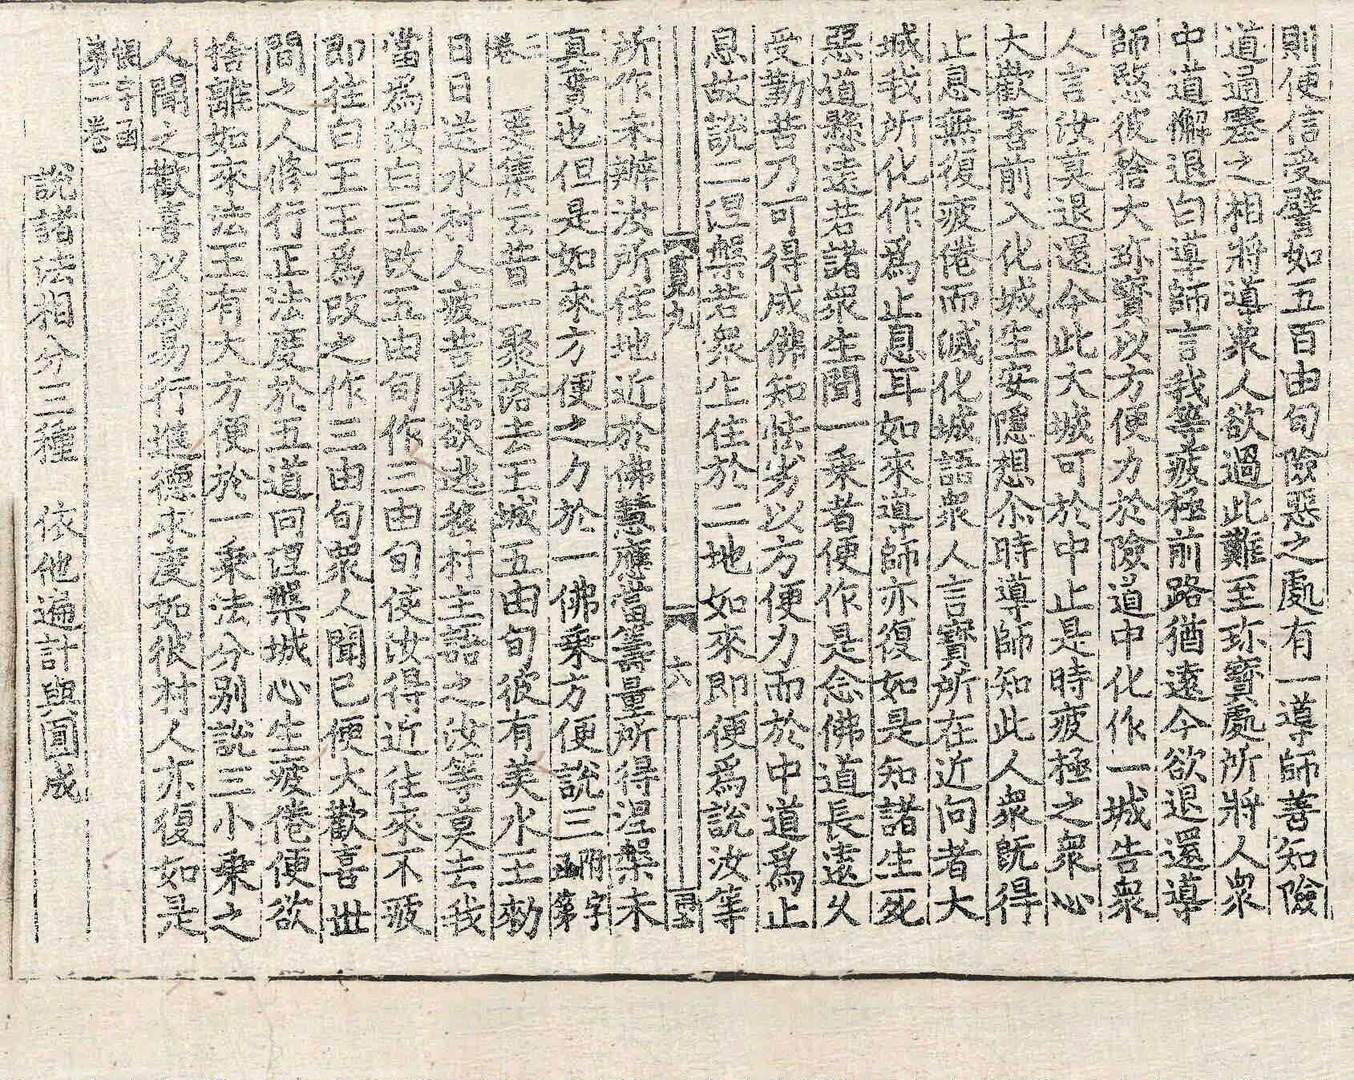 則便信受譬如五百由旬險惡之處有一導師善知險
道通塞之相將導衆人欲過此難至珎寳處所將人衆
中道懈退白導師言我等疲極前路猶遠今欲退還導
師愍彼捨大珎寳以方便力於險道中化作一城告衆
人言汝莫退還今此大城可於中止是時疲極之衆心
大歡喜前入化城生安隱想尒時導師知此人衆旣得
止息無復疲倦而滅化城語衆人言寳所在近向者大
城我所化作爲止息耳如來導師亦復如是知諸生死
惡道懸遠若諸衆生聞一乗者便作是念佛道長遠乆
受勤苦乃可得成佛知怯劣以方便力而於中道爲止
息故說二涅槃若衆生住於二地如來即便爲說汝等
覧九 六
所作未辦汝所住地近於佛慧應當籌量所得涅槃未
真實也但是如來方便之力於一佛乗方便說三附字函第
二卷 要集云昔一聚落去王城五由旬彼有美水王勑
日日送水村人疲苦悉欲逃移村主語之汝等莫去我
當爲汝白王改五由旬作三由旬使汝得近往來不疲
即往白王王爲改之作三由旬衆人聞已便大歡喜世
間之人修行正法度於五道向涅槃城心生疲倦便欲
捨離如來法王有大方便於一乗法分别說三小乗之
人聞之歡喜以爲易行進德求度如彼村人亦復如是
帳字函第二卷
說諸法相分三種 依他遍計與圓成